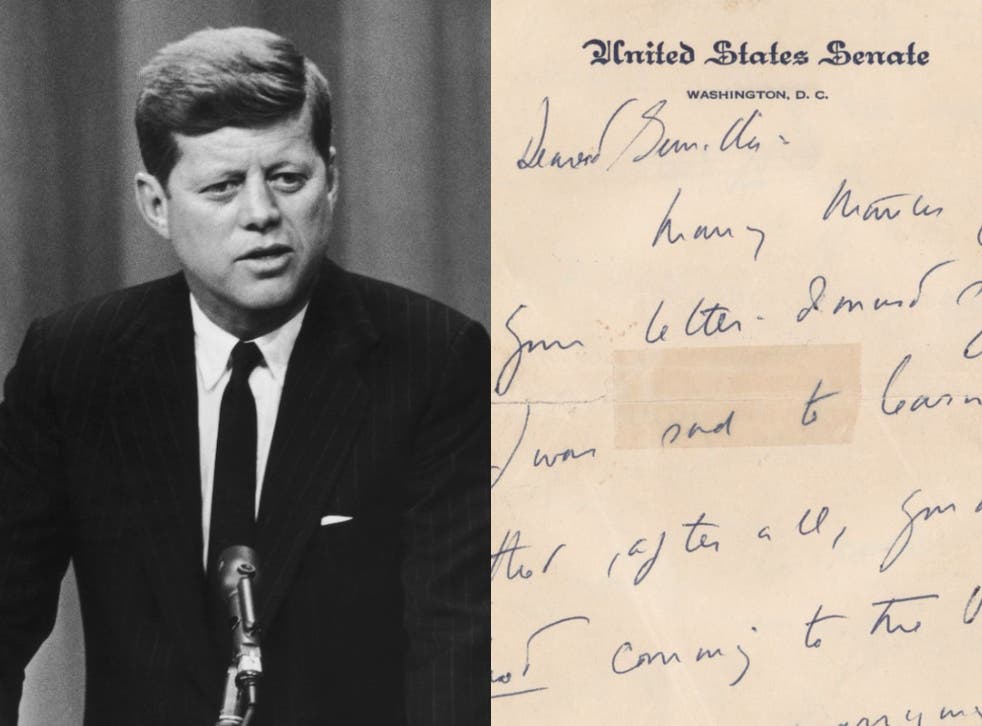 United States Senate
WASHINGTON, D. C.
Dearest Gunilla -
Many thanks
your letter -
I was sad to learn
that, after all, you
not coming to the